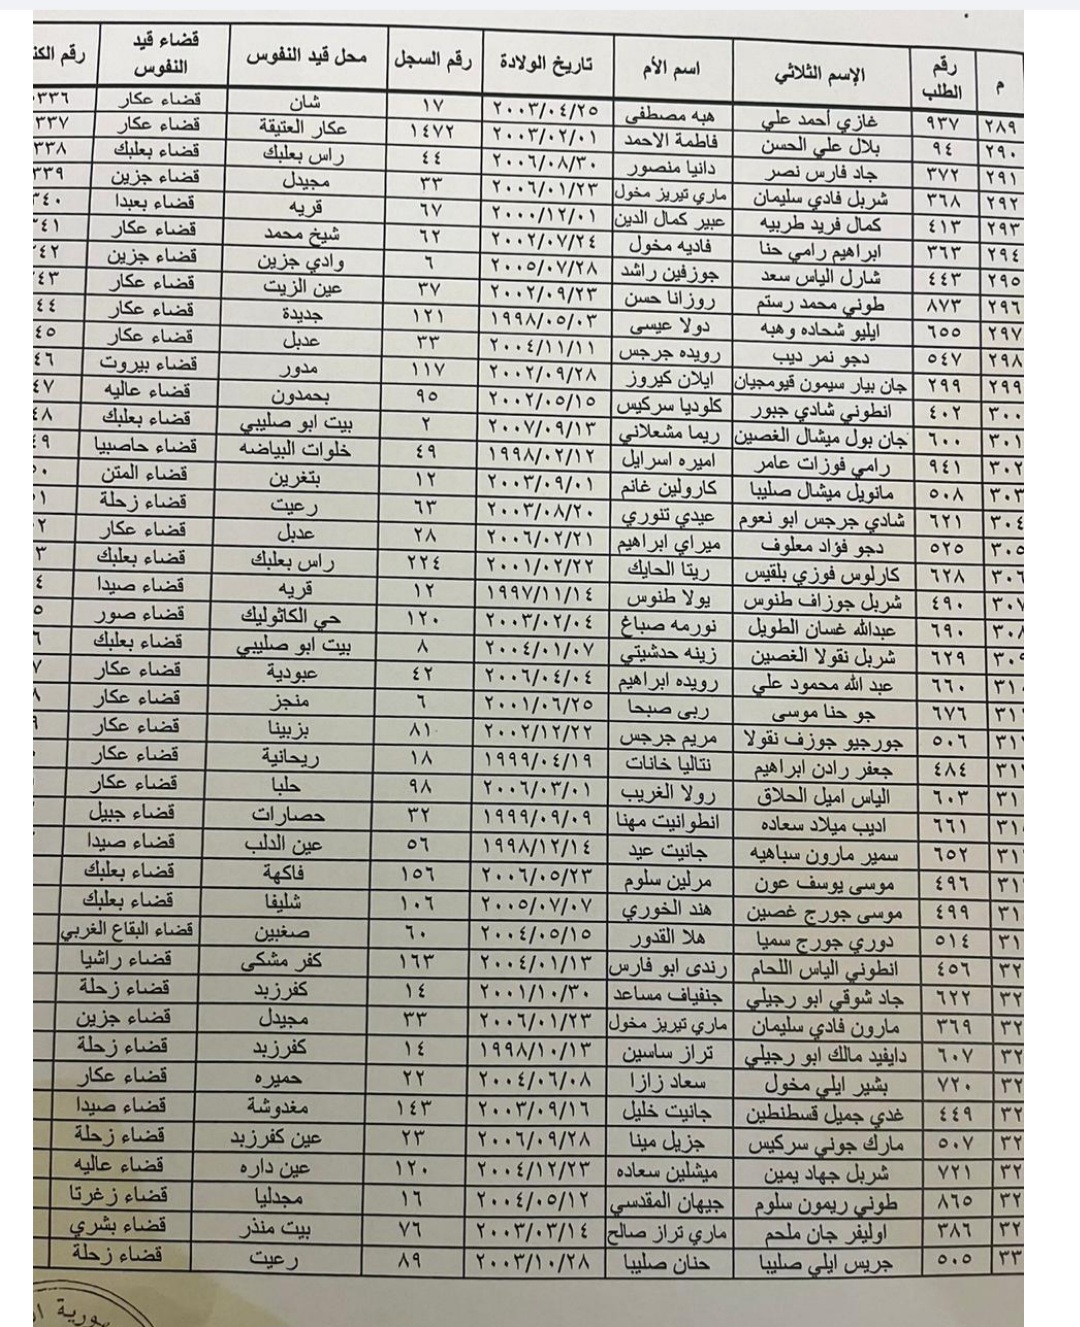 م رقم الطلب الإسم الثلاثي اسم الأم تاريخ الولادة رقم السجل محل قيد النفوس قضاء قيد النفوس رقم
٢٨٩ ٩٣٧ غازي أحمد علي هبه مصطفى ٢٠٠٣/٠٤/٢٥ ١٧ شان قضاء عكار ٣٣٦
٢٩٠ ٩٤ بلال علي الحسن فاطمة الاحمد ٢٠٠٣/٠٢/٠١ ١٤٧٢ عكار العتيقة قضاء عكار ٣٣٧
٢٩١ ٣٧٢ جاد فارس نصر دانيا منصور ٢٠٠٦/٠٨/٣٠ ٤٤ راس بعلبك قضاء بعلبك ٣٣٨
٢٩٢ ٣٦٨ شربل فادي سليمان ماري تيريز مخول ٢٠٠٦/٠١/٢٣ ٣٣ مجيدل قضاء جزين ٣٣٩
٢٩٣ ٤١٣ كمال فريد طربيه عبير كمال الدين ٢٠٠٠/١٢/٠١ ٦٧ قريه قضاء بعبدا ٣٤٠
٢٩٤ ٣٦٣ ابراهيم رامي حنا فاديه مخول ٢٠٠٢/٠٧/٢٤ ٦٢ شيخ محمد قضاء عكار ٣٤١
٢٩٥ ٤٤٣ شارل الياس سعد جوزفين راشد ٢٠٠٥/٠٧/٢٨ ٦ وادي جزين قضاء جزين ٤٢
٢٩٦ ٨٧٣ طوني محمد رستم روزانا حسن ٢٠٠٢/٠٩/٢٣ ٣٧ عين الزيت قضاء عكار ٤٣
٢٩٧ ٦٥٥ ايليو شحاده وهبه دولا عيسى ١٩٩٨/٠٥/٠٣ ١٢١ جديدة قضاء عكار ٤٤
٢٩٨ ٥٤٧ دجو نمر ديب رويده جرجس ٢٠٠٤/١١/١١ ٣٣ عدبل قضاء عكار ٤٥
٢٩٩ ٢٩٩ جان بيار سيمون قيومجيان ايلان كيروز ٢٠٠٢/٠٩/٢٨ ١١٧ مدور قضاء بيروت ٤٦
٣٠٠ ٤٠٢ انطوني شادي جبور كلوديا سركيس ٢٠٠٢/٠٥/١٥ ٩٥ بحمدون قضاء عاليه ٤٧
٣٠١ ٦٠٠ جان بول ميشال الغصين ريما مشعلاني ٢٠٠٧/٠٩/١٣ ٢ بيت ابو صليبي قضاء بعلبك ٤٨
٣٠٢ ٩٤١ رامي فوزات عامر اميره اسرايل ١٩٩٨/٠٢/١٢ ٤٩ خلوات البياضه قضاء حاصبيا ٤٩
٣٠٣ ٥٠٨ مانويل ميشال صليبا كارولين غانم ٢٠٠٣/٠٩/٠١ ١٢ بتغرين قضاء المتن ٠
٣٠٤ ٦٢١ شادي جرجس ابو نعوم عيدي تنوري ٢٠٠٣/٠٨/٢٠ ٦٣ رعيت قضاء زحلة ١
٣٠٥ ٥٢٥ دجو فؤاد معلوف ميراي ابراهيم ٢٠٠٦/٠٢/٢١ ٢٨ عدبل قضاء عكار ٢
٣٠٦ ٦٢٨ كارلوس فوزي بلقيس ريتا الحايك ٢٠٠١/٠٢/٢٢ ٢٢٤ راس بعلبك قضاء بعلبك ٣
٣٠٧ ٤٩٠ شربل جوزاف طنوس يولا طنوس ١٩٩٧/١١/١٤ ١٢ قريه قضاء صيدا ٤
٣٠٨ ٦٩٠ عبدالله غسان الطويل نورمه صباغ ٢٠٠٣/٠٢/٠٤ ١٢٠ حي الكاثوليك قضاء صور ٥
٣٠٩ ٦٢٩ شربل نقولا الغصين زينه حدشيتي ٢٠٠٤/٠١/٠٧ ٨ بيت ابو صليبي قضاء بعلبك ٦
٣١٠ ٦٦٠ عبد الله محمود علي رويده ابراهيم ٢٠٠٦/٠٤/٠٤ ٤٢ عبودية قضاء عكار ٧
٣١ ٦٧٦ جو حنا موسى ربى صبحا ٢٠٠١/٠٦/٢٥ ٦ منجز قضاء عكار ٨
٣١ ٥٠٦ جورجيو جوزف نقولا مريم جرجس ٢٠٠٢/١٢/٢٢ ٨١ بزبينا قضاء عكار ٩
٣١ ٤٨٤ جعفر رادن ابراهيم نتاليا خانات ١٩٩٩/٠٤/١٩ ١٨ ريحانية قضاء عكار
٣١ ٦٠٣ الياس اميل الحلاق رولا الغريب ٢٠٠٦/٠٣/٠١ ٩٨ حلبا قضاء عكار
٣١ ٦٦١ اديب ميلاد سعاده انطوانيت مهنا ١٩٩٩/٠٩/٠٩ ٣٢ حصارات قضاء جبيل
٣١ ٦٥٢ سمير مارون سباهيه جانيت عيد ١٩٩٨/١٢/١٤ ٥٦ عين الدلب قضاء صيدا
٣١ ٤٩٦ موسى يوسف عون مرلين سلوم ٢٠٠٦/٠٥/٢٣ ١٥٦ فاكهة قضاء بعلبك
٣١ ٤٩٩ موسى جورج غصين هند الخوري ٢٠٠٥/٠٧/٠٧ ١٠٦ شليفا قضاء بعلبك
٣١ ٥١٤ دوري جورج سميا هلا القدور ٢٠٠٤/٠٥/١٥ ٦٠ صغبين قضاء البقاع الغربي
٣٢ ٤٥٦ انطوني الياس اللحام رندى ابو فارس ٢٠٠٤/٠١/١٣ ١٦٣ كفر مشكي قضاء راشيا
٣٢ ٦٢٢ جاد شوقي ابو رجيلي جنفياف مساعد ٢٠٠١/١٠/٣٠ ١٤ كفرزبد قضاء زحلة
٣٢ ٣٦٩ مارون فادي سليمان ماري تيريز مخول ٢٠٠٦/٠١/٢٣ ٣٣ مجيدل قضاء جزين
٣٢ ٦٠٧ دايفيد مالك ابو رجيلي تراز ساسين ١٩٩٨/١٠/١٣ ١٤ كفرزبد قضاء زحلة
٣٢ ٧٢٠ بشير ايلي مخول سعاد زازا ٢٠٠٤/٠٦/٠٨ ٢٢ حميره قضاء عكار
٣٢ ٤٤٩ غدي جميل قسطنطين جانيت خليل ٢٠٠٣/٠٩/١٦ ١٤٣ مغدوشة قضاء صيدا
٣٢ ٥٠٧ مارك جوني سركيس جزيل مينا ٢٠٠٦/٠٩/٢٨ ٢٣ عين كفرزبد قضاء زحلة
٣٢ ٧٢١ شربل جهاد يمين ميشلين سعاده ٢٠٠٤/١٢/٢٣ ١٢٠ عين داره قضاء عاليه
٣٢ ٨٦٥ طوني ريمون سلوم جيهان المقدسي ٢٠٠٤/٠٥/١٢ ١٦ مجدليا قضاء زغرتا
٣٢ ٣٨٦ اوليفر جان ملحم ماري تراز صالح ٢٠٠٣/٠٣/١٤ ٧٦ بيت منذر قضاء بشري
٣٣ ٥٠٥ جريس ايلي صليبا حنان صليبا ٢٠٠٣/١٠/٢٨ ٨٩ رعيت قضاء زحلة